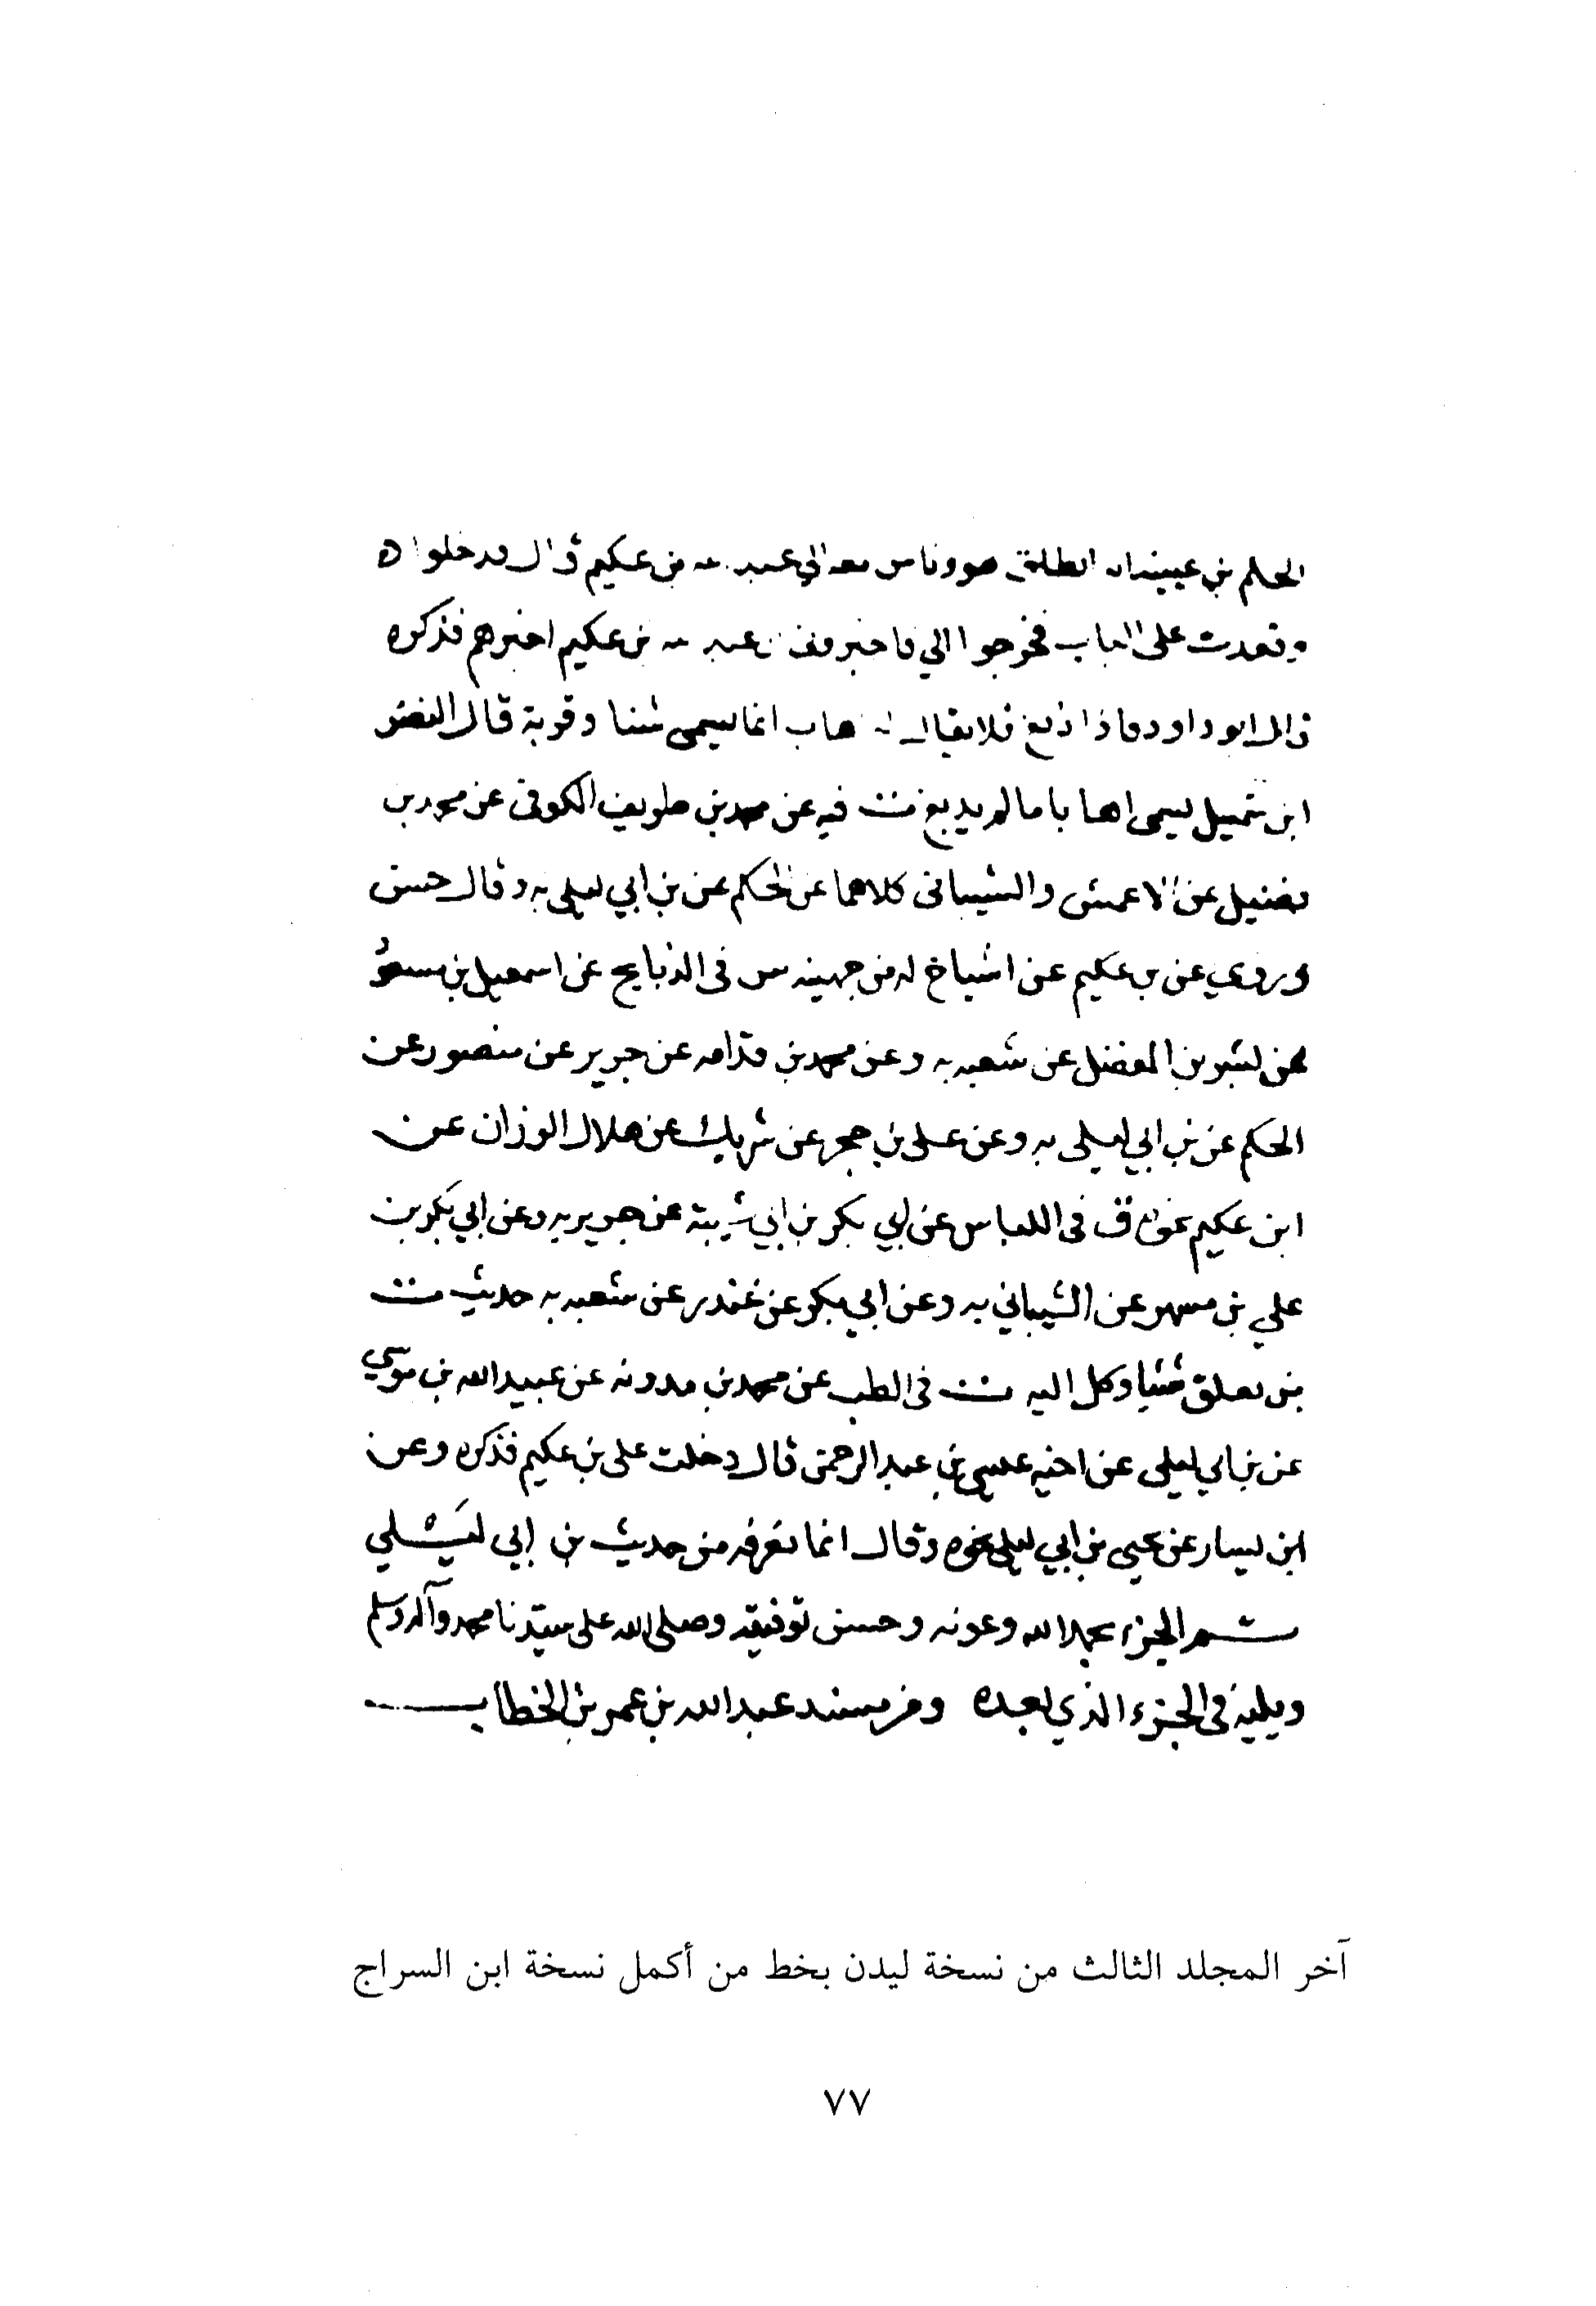 الحكم بن عيينه انه انطلق هو وناس معه الي عبد الله بن عكيم قال فدخلوا
وقعدت على الباب فخرجوا الي فاخبروني ان عبد الله بن عكيم اخبرهم فذكره
قال ابو داود فاذا دبغ فلا يقال له اهاب انما يسمى شنا وقربة قال النضر
ابن شميل يسمى اهابا ما لم يدبغ ت فيه عن محمد بن طريف الكوفي عن محمد بن
فضيل عن الاعمش والشيباني كلاهما عن الحكم عن بن ابي ليلى به وقال حسن
وروي عن بن عكيم عن اشياخ له من جهينه س في الذبايح عن اسمعيل بن مسعود
عن بشر بن المفضل عن شعبه به وعن محمد بن قدامه عن جرير عن منصور عن
الحكم عن بن ابي ليلى به وعن علي بن حجر عن شريك عن هلال الوزان عن
ابن عكيم نحوه ق في اللباس عن ابي بكر بن ابي شيبة عن جرير به وعن ابي بكر بن
علي بن مسهر عن الشيباني به وعن ابي بكر عن غندر عن شعبه به حديث ت
من تعلق شيا وكل اليه ت في الطب عن محمد بن مدونه عن عبيد الله بن موسي
عن بن ابي ليلى عن اخيه عيسى بن عبد الرحمن قال دخلت على بن عكيم فذكره وعن
ابن بسار عن يحيى عن بن ابي ليلى نحوه وقال انما نعرفه من حديث بن ابي ليلي
تم الجزء بحمد الله وعونه وحسن توفيقه وصلى الله على سيدنا محمد وآله وسلم
ويليه في الجزء الذي بعده ومن مسند عبد الله بن عمر بن الخطاب
آخر المجلد الثالث من نسخة ليدن بخط من أكمل نسخة ابن السراج
٧٧